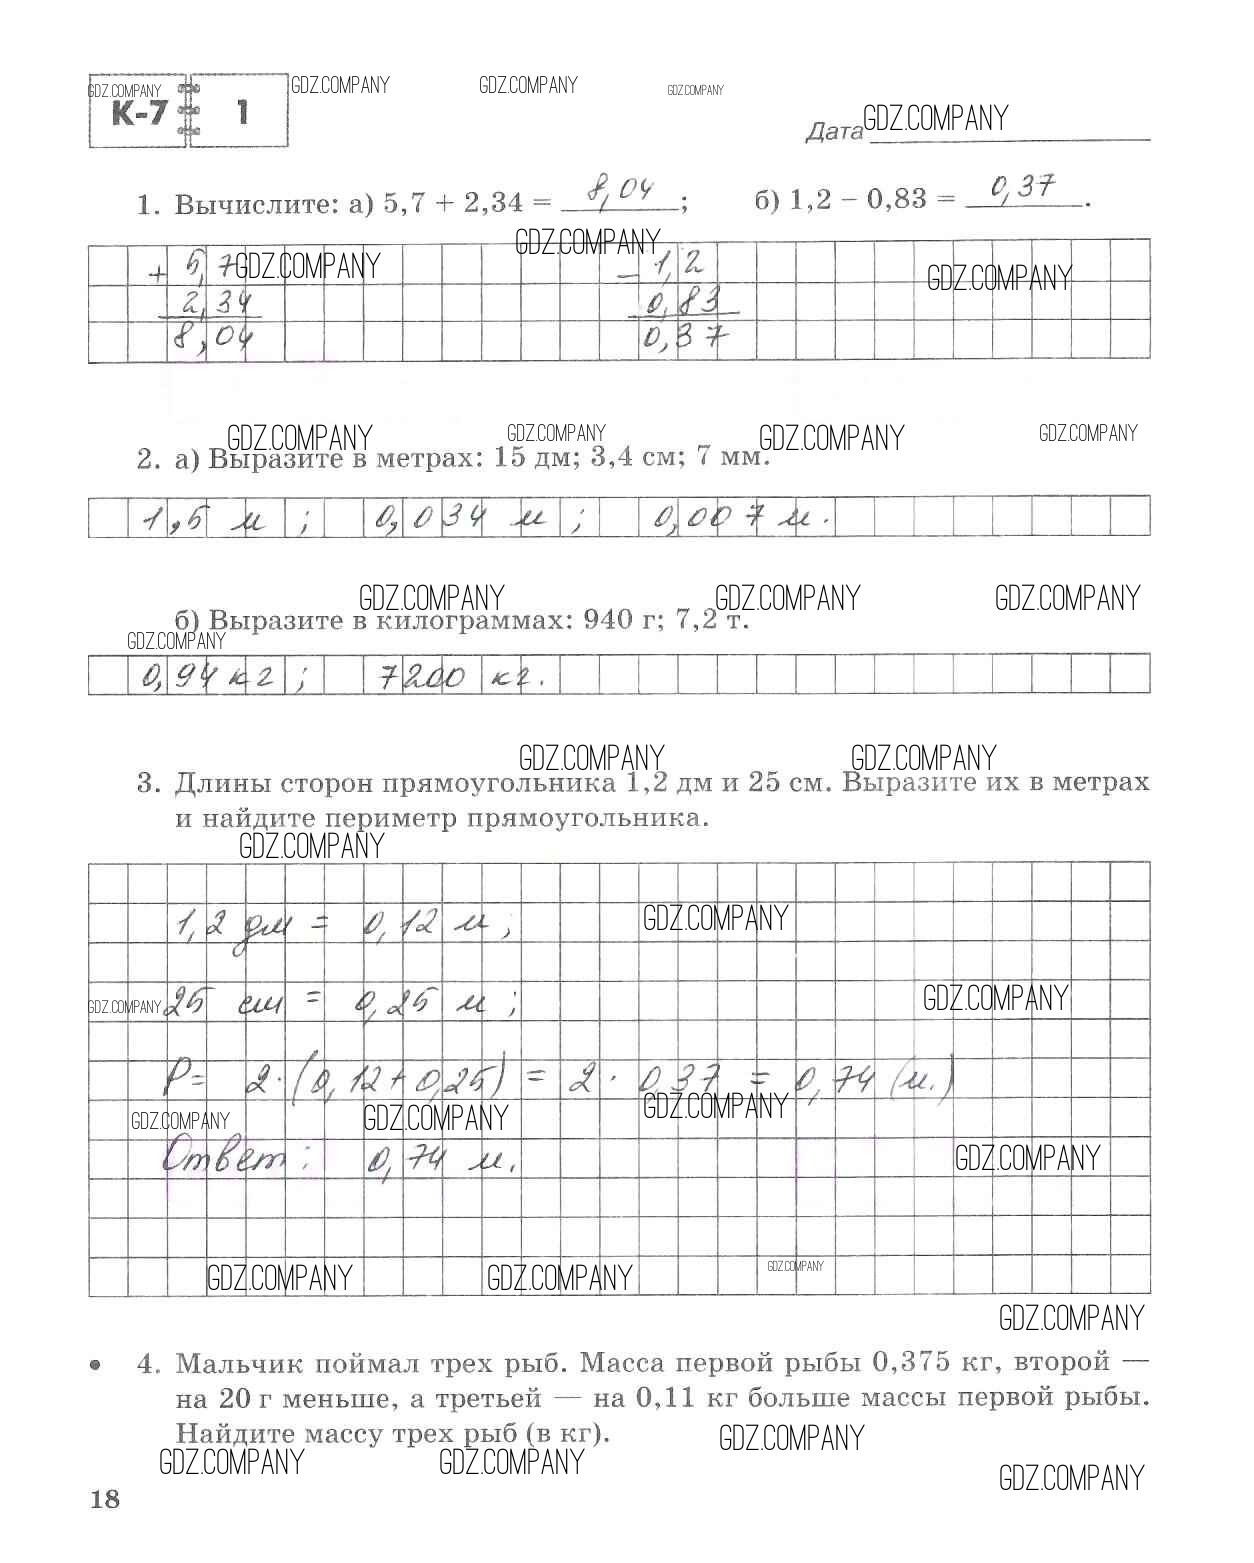 GDZ.COMPANY GDZ.COMPANY GDZ.COMPANY GDZ.COMPANY
К-7 1
Дата GDZ.COMPANY
1. Вычислите: а) 5,7 + 2,34 = 8,04; б) 1,2 – 0,83 = 0,37.
GDZ.COMPANY
+ 5,7 GDZ.COMPANY – 1,2 GDZ.COMPANY
2,34 0,83
8,04 0,37
GDZ.COMPANY GDZ.COMPANY GDZ.COMPANY GDZ.COMPANY
2. а) Выразите в метрах: 15 дм; 3,4 см; 7 мм.
1,5 м ; 0,034 м ; 0,007 м.
GDZ.COMPANY GDZ.COMPANY GDZ.COMPANY
б) Выразите в килограммах: 940 г; 7,2 т.
GDZ.COMPANY
0,94 кг ; 7200 кг.
GDZ.COMPANY GDZ.COMPANY
3. Длины сторон прямоугольника 1,2 дм и 25 см. Выразите их в метрах
и найдите периметр прямоугольника.
GDZ.COMPANY
1,2 дм = 0,12 м ; GDZ.COMPANY
GDZ.COMPANY 25 см = 0,25 м ; GDZ.COMPANY
P = 2 · (0,12 + 0,25) = 2 · 0,37 = 0,74 (м.)
GDZ.COMPANY GDZ.COMPANY GDZ.COMPANY
Ответ : 0,74 м. GDZ.COMPANY
GDZ.COMPANY GDZ.COMPANY GDZ.COMPANY
GDZ.COMPANY
• 4. Мальчик поймал трех рыб. Масса первой рыбы 0,375 кг, второй —
на 20 г меньше, а третьей — на 0,11 кг больше массы первой рыбы.
Найдите массу трех рыб (в кг).
GDZ.COMPANY GDZ.COMPANY GDZ.COMPANY
GDZ.COMPANY
18